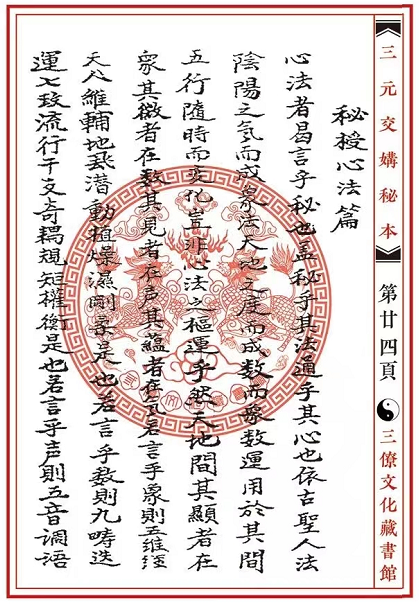 三元交媾秘本
第廿四頁
三僚文化藏書館
秘授心法篇
心法者曷言乎秘也盖秘乎其法通乎其心也依古聖人法
陰陽之氣而成象法天地之度而成数而象数運用於其間
五行隨時而变化豈非心法之樞運乎然天地間其顯者在
象其微者在数其見者在声其蘊者在气若言乎象則五維經
天八維輔地飛潛動植燥濕剛柔是也若言乎数則九畴迭
運七政流行干支奇耦規矩權衡是也若言乎声則五音調